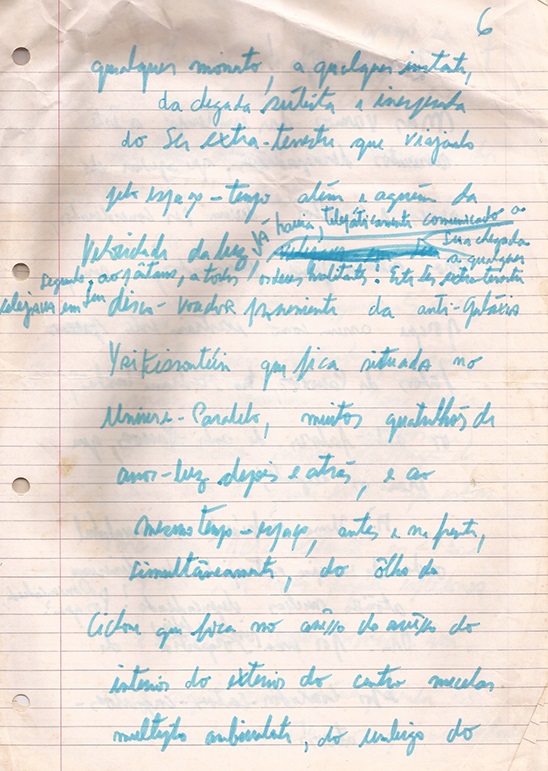 6
qualquer momento, a qualquer instante,
da chegada súbita e inesperada
do Ser extra-terrestre que viajando
pelo espaço-tempo além e aquém da
Velocidade da luz já havia, telepáticamente comunicado a
Sua chegada
a qualquer
segundo, aos pântanos, a todos habitats. Este Ser extra-terrestre
viajava em seu disco-voador proveniente da anti-Galáxia
que fica situada no
Universo-Paralelo, muitos quatrilhões de
anos-luz depois e atrás, e ao
mesmo tempo-espaço, antes e na frente,
simultâneamente, do ôlho do
Ciclone que fica no do do
interior do exterior do centro
ambivalente, do umbigo do